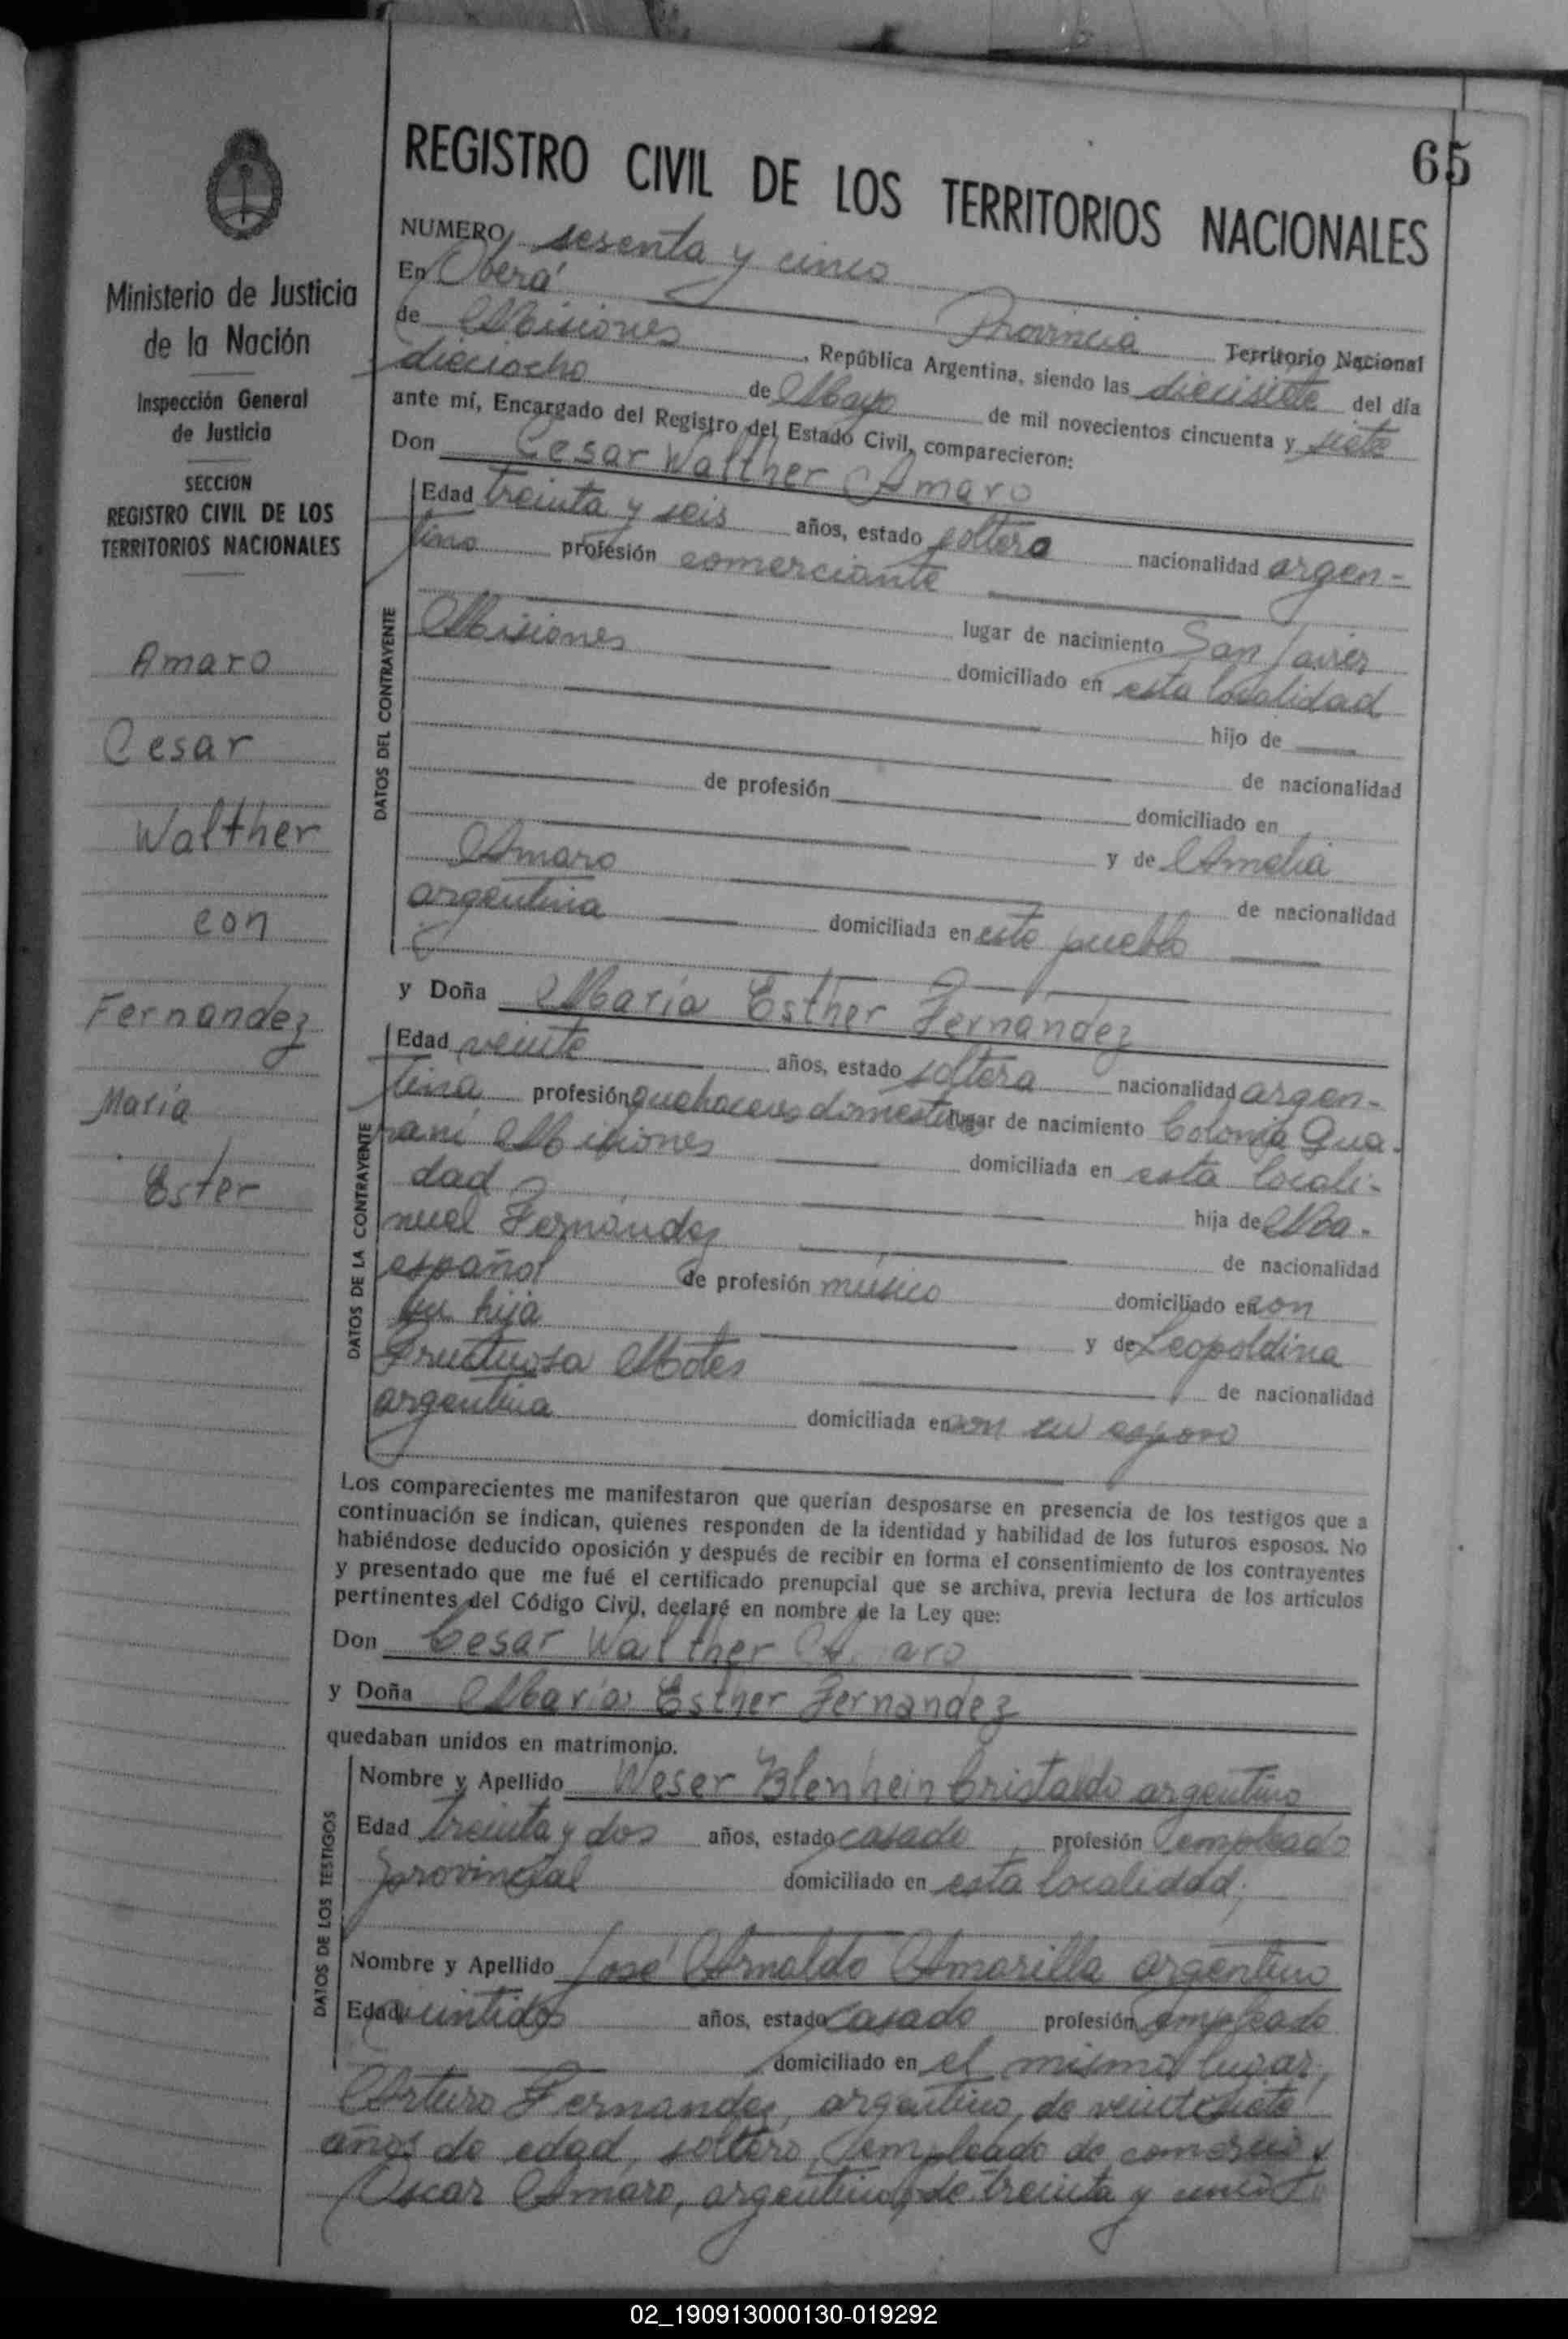 65
REGISTRO CIVIL DE LOS TERRITORIOS NACIONALES
Ministerio de Justicia
de la Nación
Inspección General
de Justicia
SECCION
REGISTRO CIVIL DE LOS
TERRITORIOS NACIONALES
Amaro
Cesar
Walther
con
Fernandez
María
Ester
NUMERO sesenta y cinco
En Oberá Provincia Territorio Nacional
de Misiones, República Argentina, siendo las diecisiete del día
dieciocho de Mayo de mil novecientos cincuenta y siete
ante mí, Encargado del Registro del Estado Civil, comparecieron:
Don Cesar Walther Amaro
DATOS DEL CONTRAYENTE
Edad treinta y seis años, estado soltero nacionalidad argen-
tino profesión comerciante
lugar de nacimiento San Javier
Misiones domiciliado en esta localidad
hijo de
de nacionalidad
de profesión domiciliado en
y de Amelia
Amaro de nacionalidad
argentina domiciliada en este pueblo
y Doña María Esther Fernandez
DATOS DE LA CONTRAYENTE
Edad veinte años, estado soltera nacionalidad argen-
tina profesión quehaceres domesticos lugar de nacimiento Colonia Gua-
raní Misiones domiciliada en esta locali-
dad hija de Ma-
nuel Fernández de nacionalidad
español de profesión músico domiciliado en con
su hija y de Leopoldina
Fructuosa Motes de nacionalidad
argentina domiciliada en con su esposo
Los comparecientes me manifestaron que querían desposarse en presencia de los testigos que a
continuación se indican, quienes responden de la identidad y habilidad de los futuros esposos. No
habiéndose deducido oposición y después de recibir en forma el consentimiento de los contrayentes
y presentado que me fué el certificado prenupcial que se archiva, previa lectura de los artículos
pertinentes del Código Civil, declaré en nombre de la Ley que:
Don Cesar Walther Amaro
y Doña María Esther Fernandez
quedaban unidos en matrimonio.
DATOS DE LOS TESTIGOS
Nombre y Apellido Weser Blenhein Cristaldo argentino
Edad treinta y dos años, estado casado profesión empleado
provincial domiciliado en esta localidad;
Nombre y Apellido José Arnaldo Amarilla argentino
Edad veintidos años, estado casado profesión empleado
domiciliado en el mismo lugar,
Arturo Fernandez, argentino, de veintisiete
años de edad, soltero, empleado de comercio y
Oscar Amaro, argentino, de treinta y
02_190913000130-019292